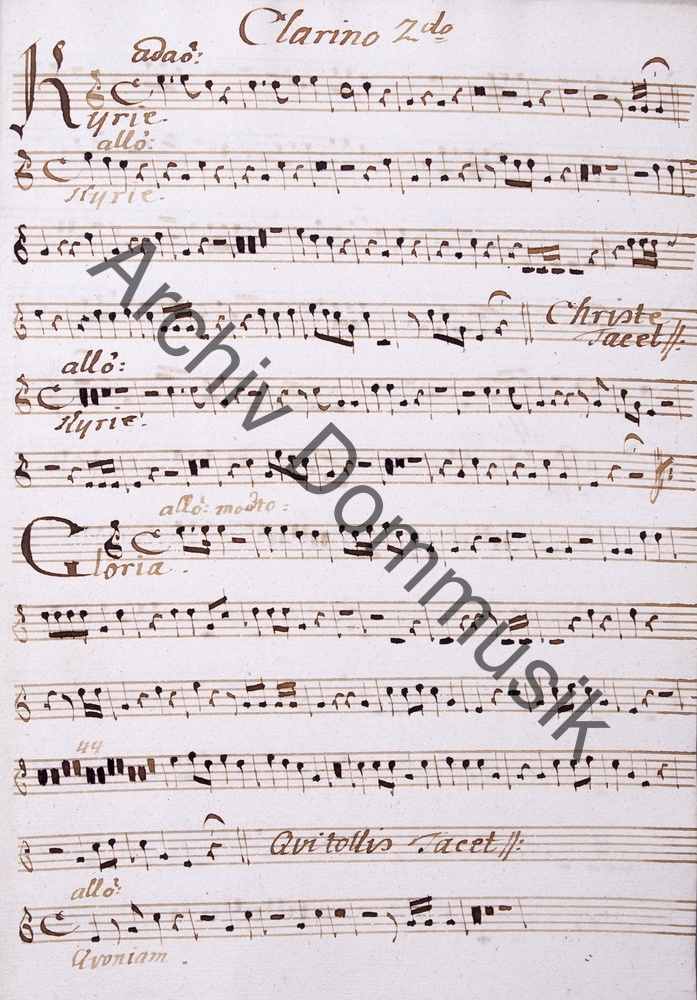 Clarino 2do
adaō:
Kyrie.
allō:
Kyrie.
Christe
Tacet //:
allō:
Kyrie.
allō: modto:
Gloria.
44
Qvi tollis Tacet //:
allō:
Qvoniam.
Archiv Dommusik